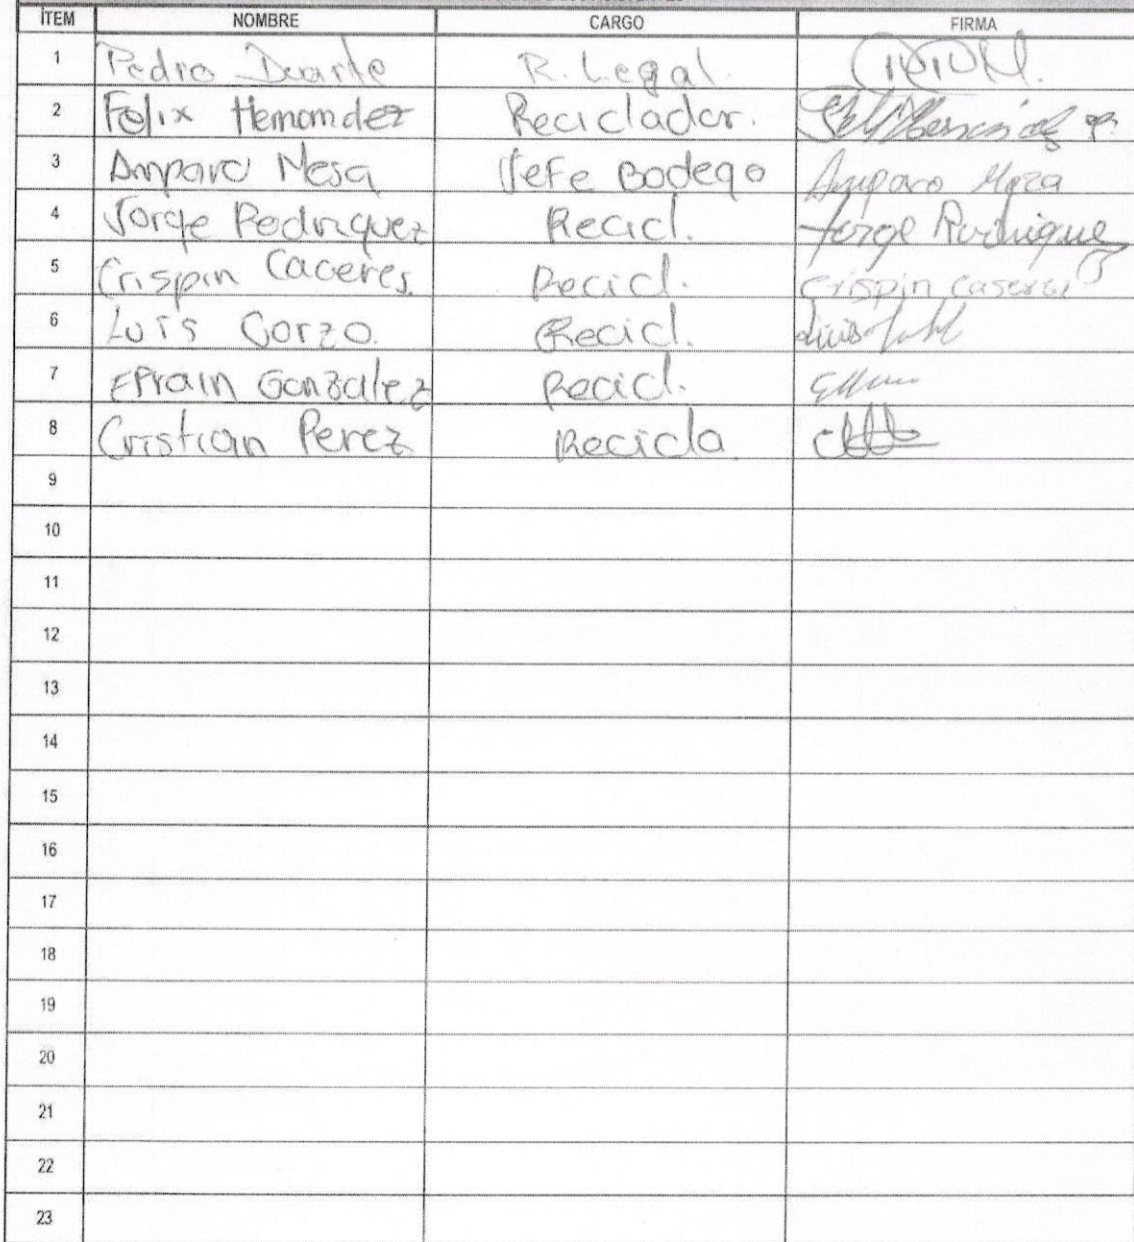 ÍTEM NOMBRE CARGO FIRMA
1 Pedro Duarte R. Legal.
2 Felix Hernandez Reciclador.
3 Amparo Mesa Jefe Bodega Amparo Meza
4 Jorge Rodriguez Recicl. Jorge Rodrigue
5 Crispin Caceres. Recicl. Crispin caseres
6 Luis Gorzo. Recicl. Luis
7 Efrain Gonzalez Recicl.
8 Cristian Perez Recicla
9
10
11
12
13
14
15
16
17
18
19
20
21
22
23